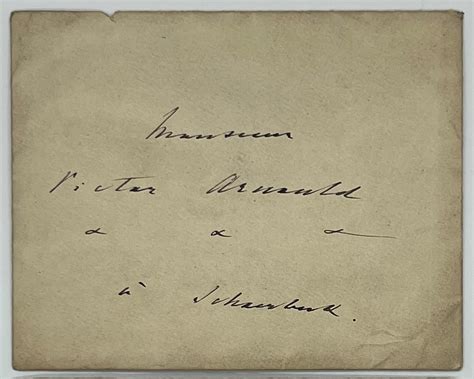 Monsieur
Victor Arnould
à Schaerbeek.